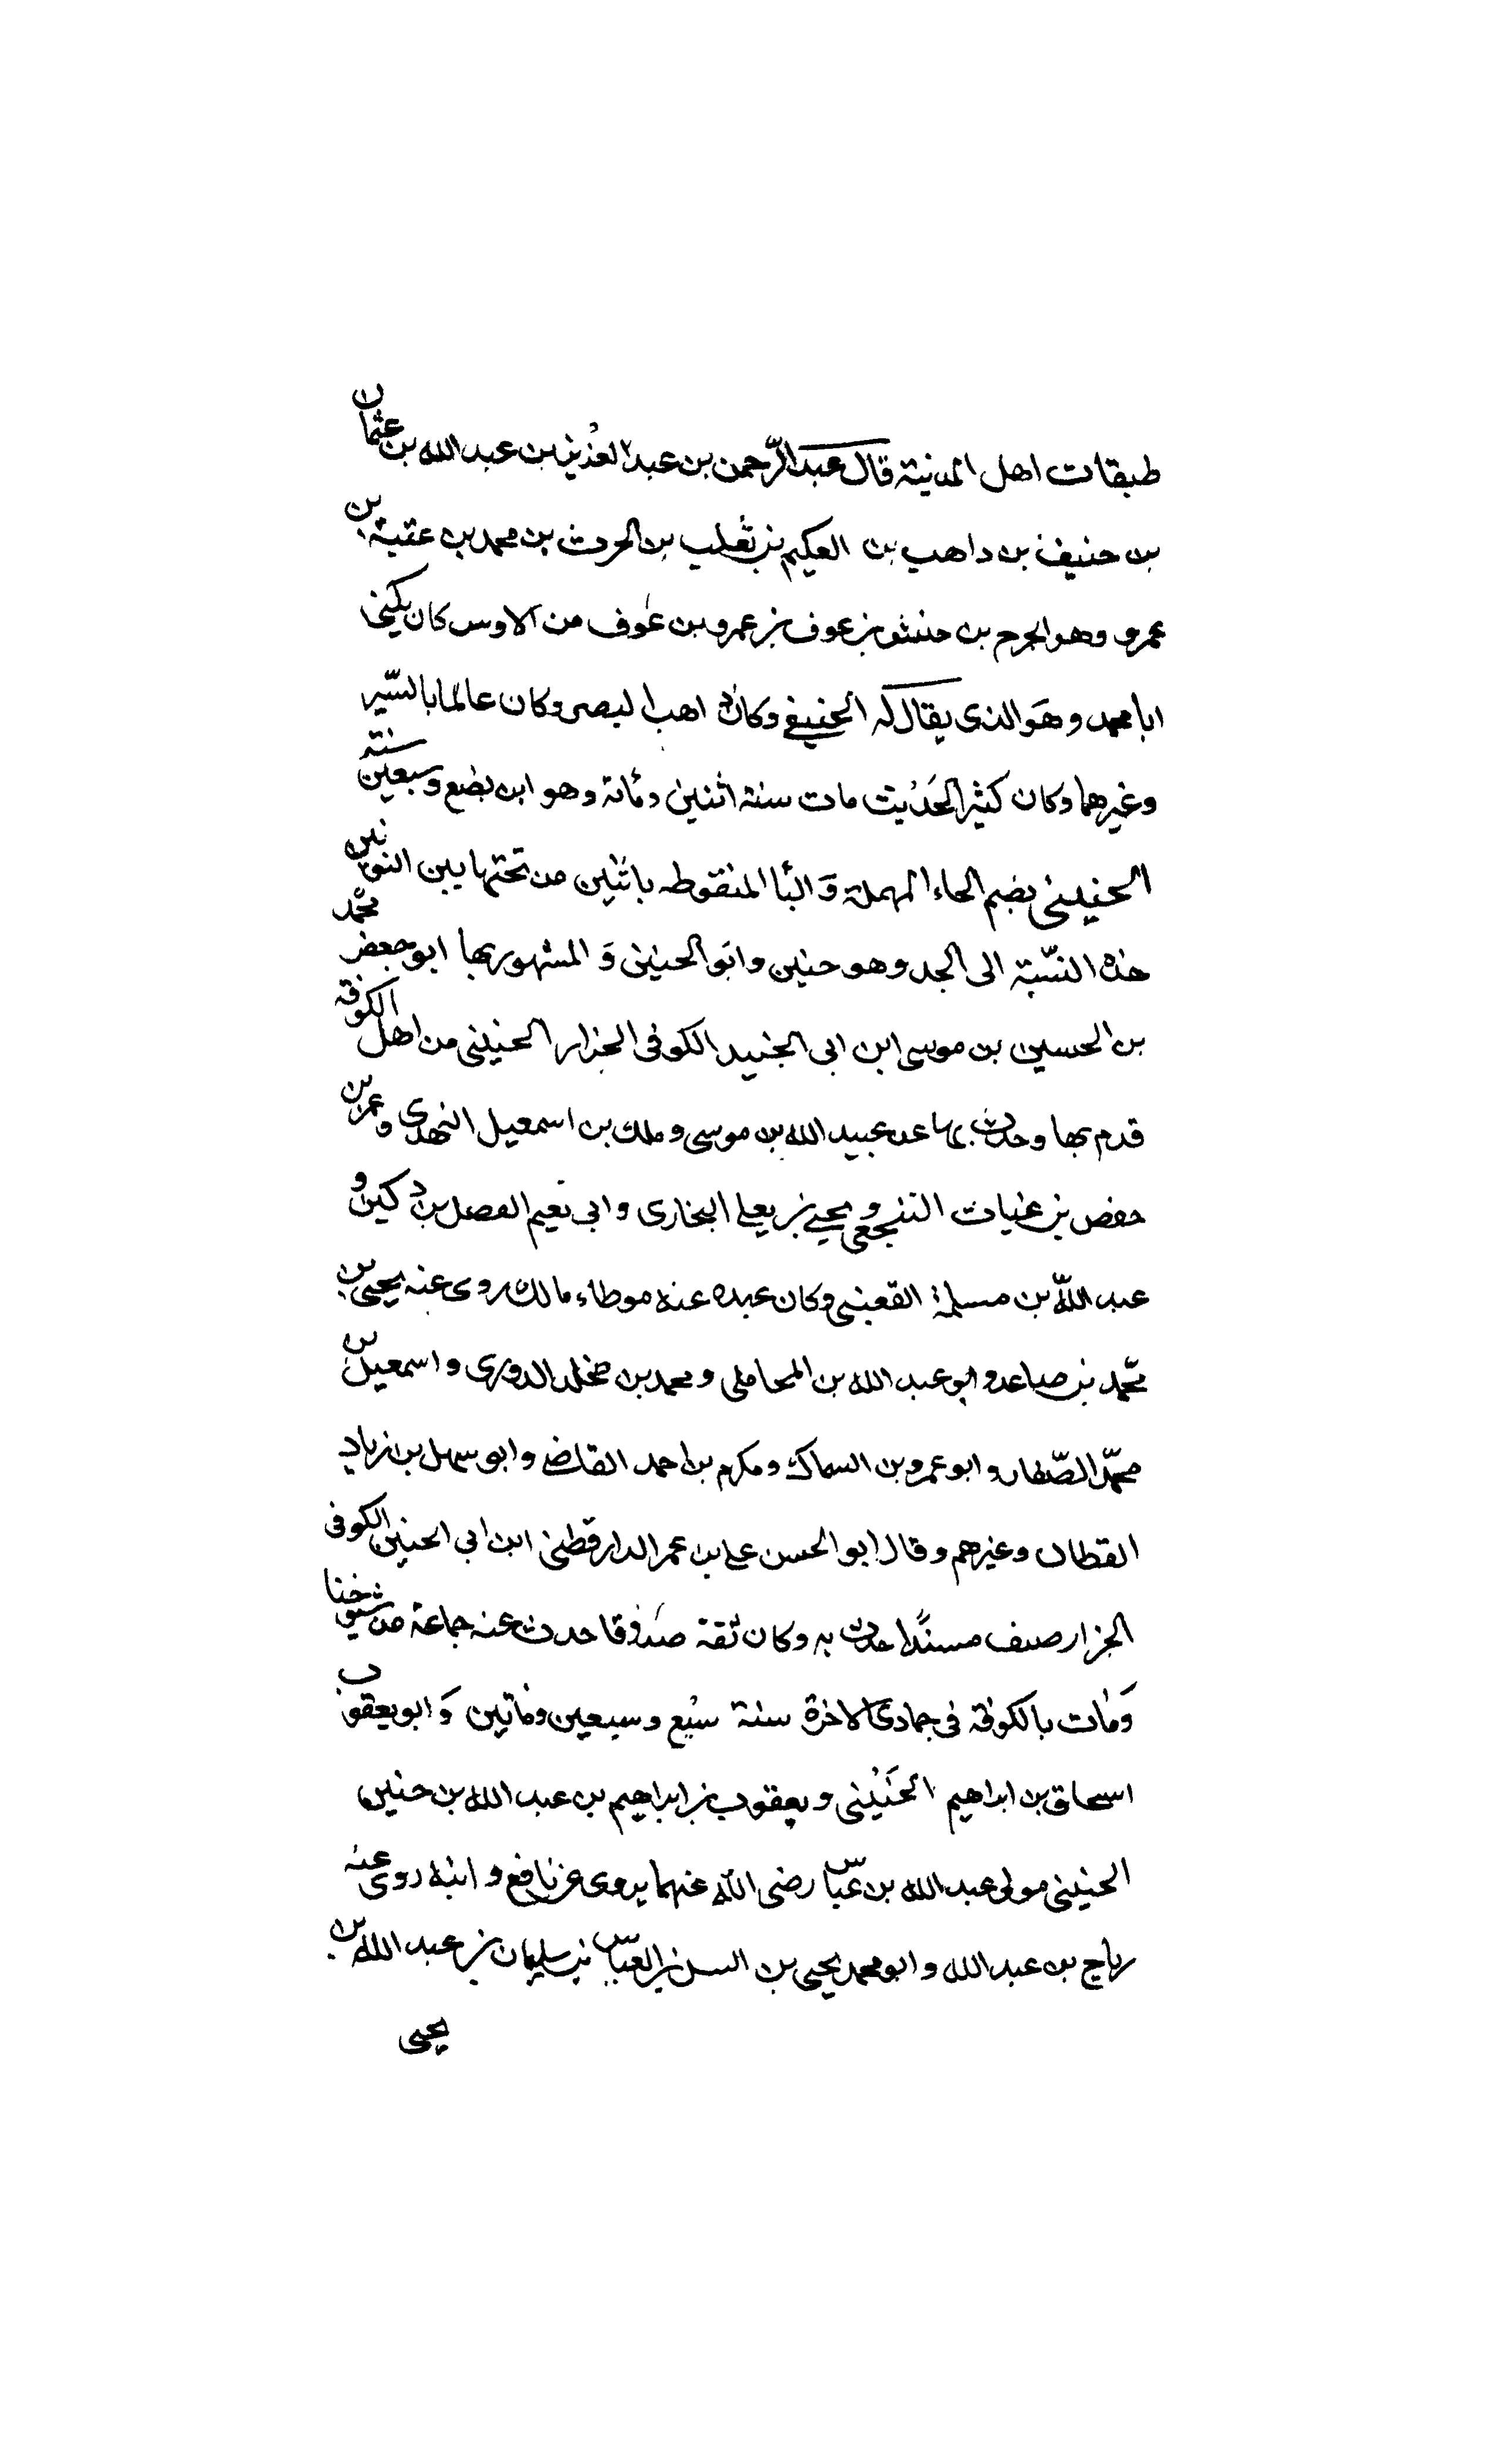 طبقات اهل المدنية قال عبد الرّحمن بن عبد العزيز بن عبد الله بن عثمان
بن حنيف بن داهب بن العكيم بن ثعلب بن الحرث بن محمد بن عقبة بن
عمرو وهو الجرح بن حنش بن عوف بن عمرو بن عوف من الاوس كان يكنى
ابا محمد وهو الذى يقال له الحنيفى وكان ذاهب البصر وكان عالما بالسّير
وغيرهما وكان كثير الحديث مات سنة اثنين ومائة وهو ابن بضع وسبعين سنة
الحنينى بضم الحاء المهملة وَ البأ المنقوطه باثنين من تحتها بين النونين
هذه النسّبة الى الجد وهو حنين وابو الحنين وَ المشهور بها ابو جعفر محمّد
بن الحسين بن موسى ابن ابى الجنيد الكوفى الخزار الحنينى من اهل الكوفة
قدم بها وحدث بها عن عبيد الله بن موسى وملك بن اسمعيل النهدى وعمر بن
حفص بن غياث النخعى ويحيى بن يعلى البخارى وابى نعيم الفصل بن دكين و
عبد اللّه بن مسلمة القعنبى وكان عبده عنه موطاء مالك روى عنه يحيى بن
محمّد بن صاعد وابو عبد الله بن المحاملى ومحمد بن مخلد الدورى واسمعيل بن
محمّد الصّفار وابو عمرو بن السماك ومكرم بن احمد القاضى وابو سهل بن زياد
القطان وغيرهم وقال ابو الحسن على بن عمر الدارقطنى ابن ابى الحنين الكوفى
الجزار صنف مسندًا حدث به وكان ثقة صدوقا حدث عنه جماعة من شيوخنا
وَمات بالكوفة فى جمادى الاخرة سنة سبع وسبعين ومائتين وَ ابو يعقوب
اسحاق بن ابراهيم الحنَيْنى ويعقوب بن ابراهيم بن عبد الله بن حنين
الحنينى مولى عبد الله بن عبّاس رضى اللّه عنهما يروى عن نافع وابنه روى عنه
رباح بن عبد الله وابو محمد يحيى بن السن بن العباس بن سليمان بن عبد الله بن
يحيى